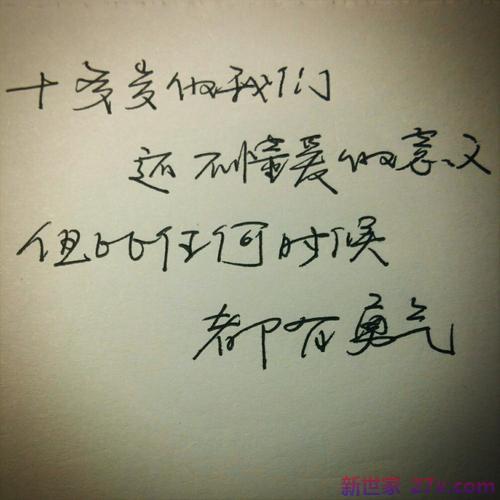 十多岁的我们
还不懂爱的意义
但比任何时候
都有勇气
新世家 27x.com